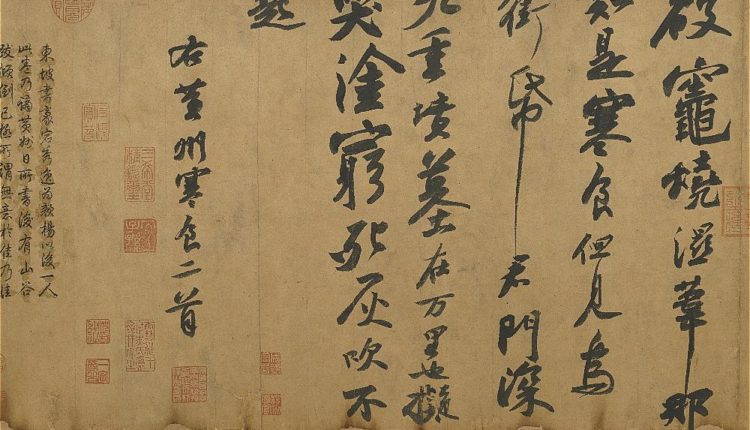 破竈燒濕葦那
知是寒食但見烏
銜帋君門深
九重墳墓在万里也擬
哭塗窮死灰吹不
起
右黃州寒食二首
東坡書豪宕秀逸為顏楊以後一人
此卷乃謫黃州日所書後有山谷
跋傾倒已極所謂無意於佳乃佳